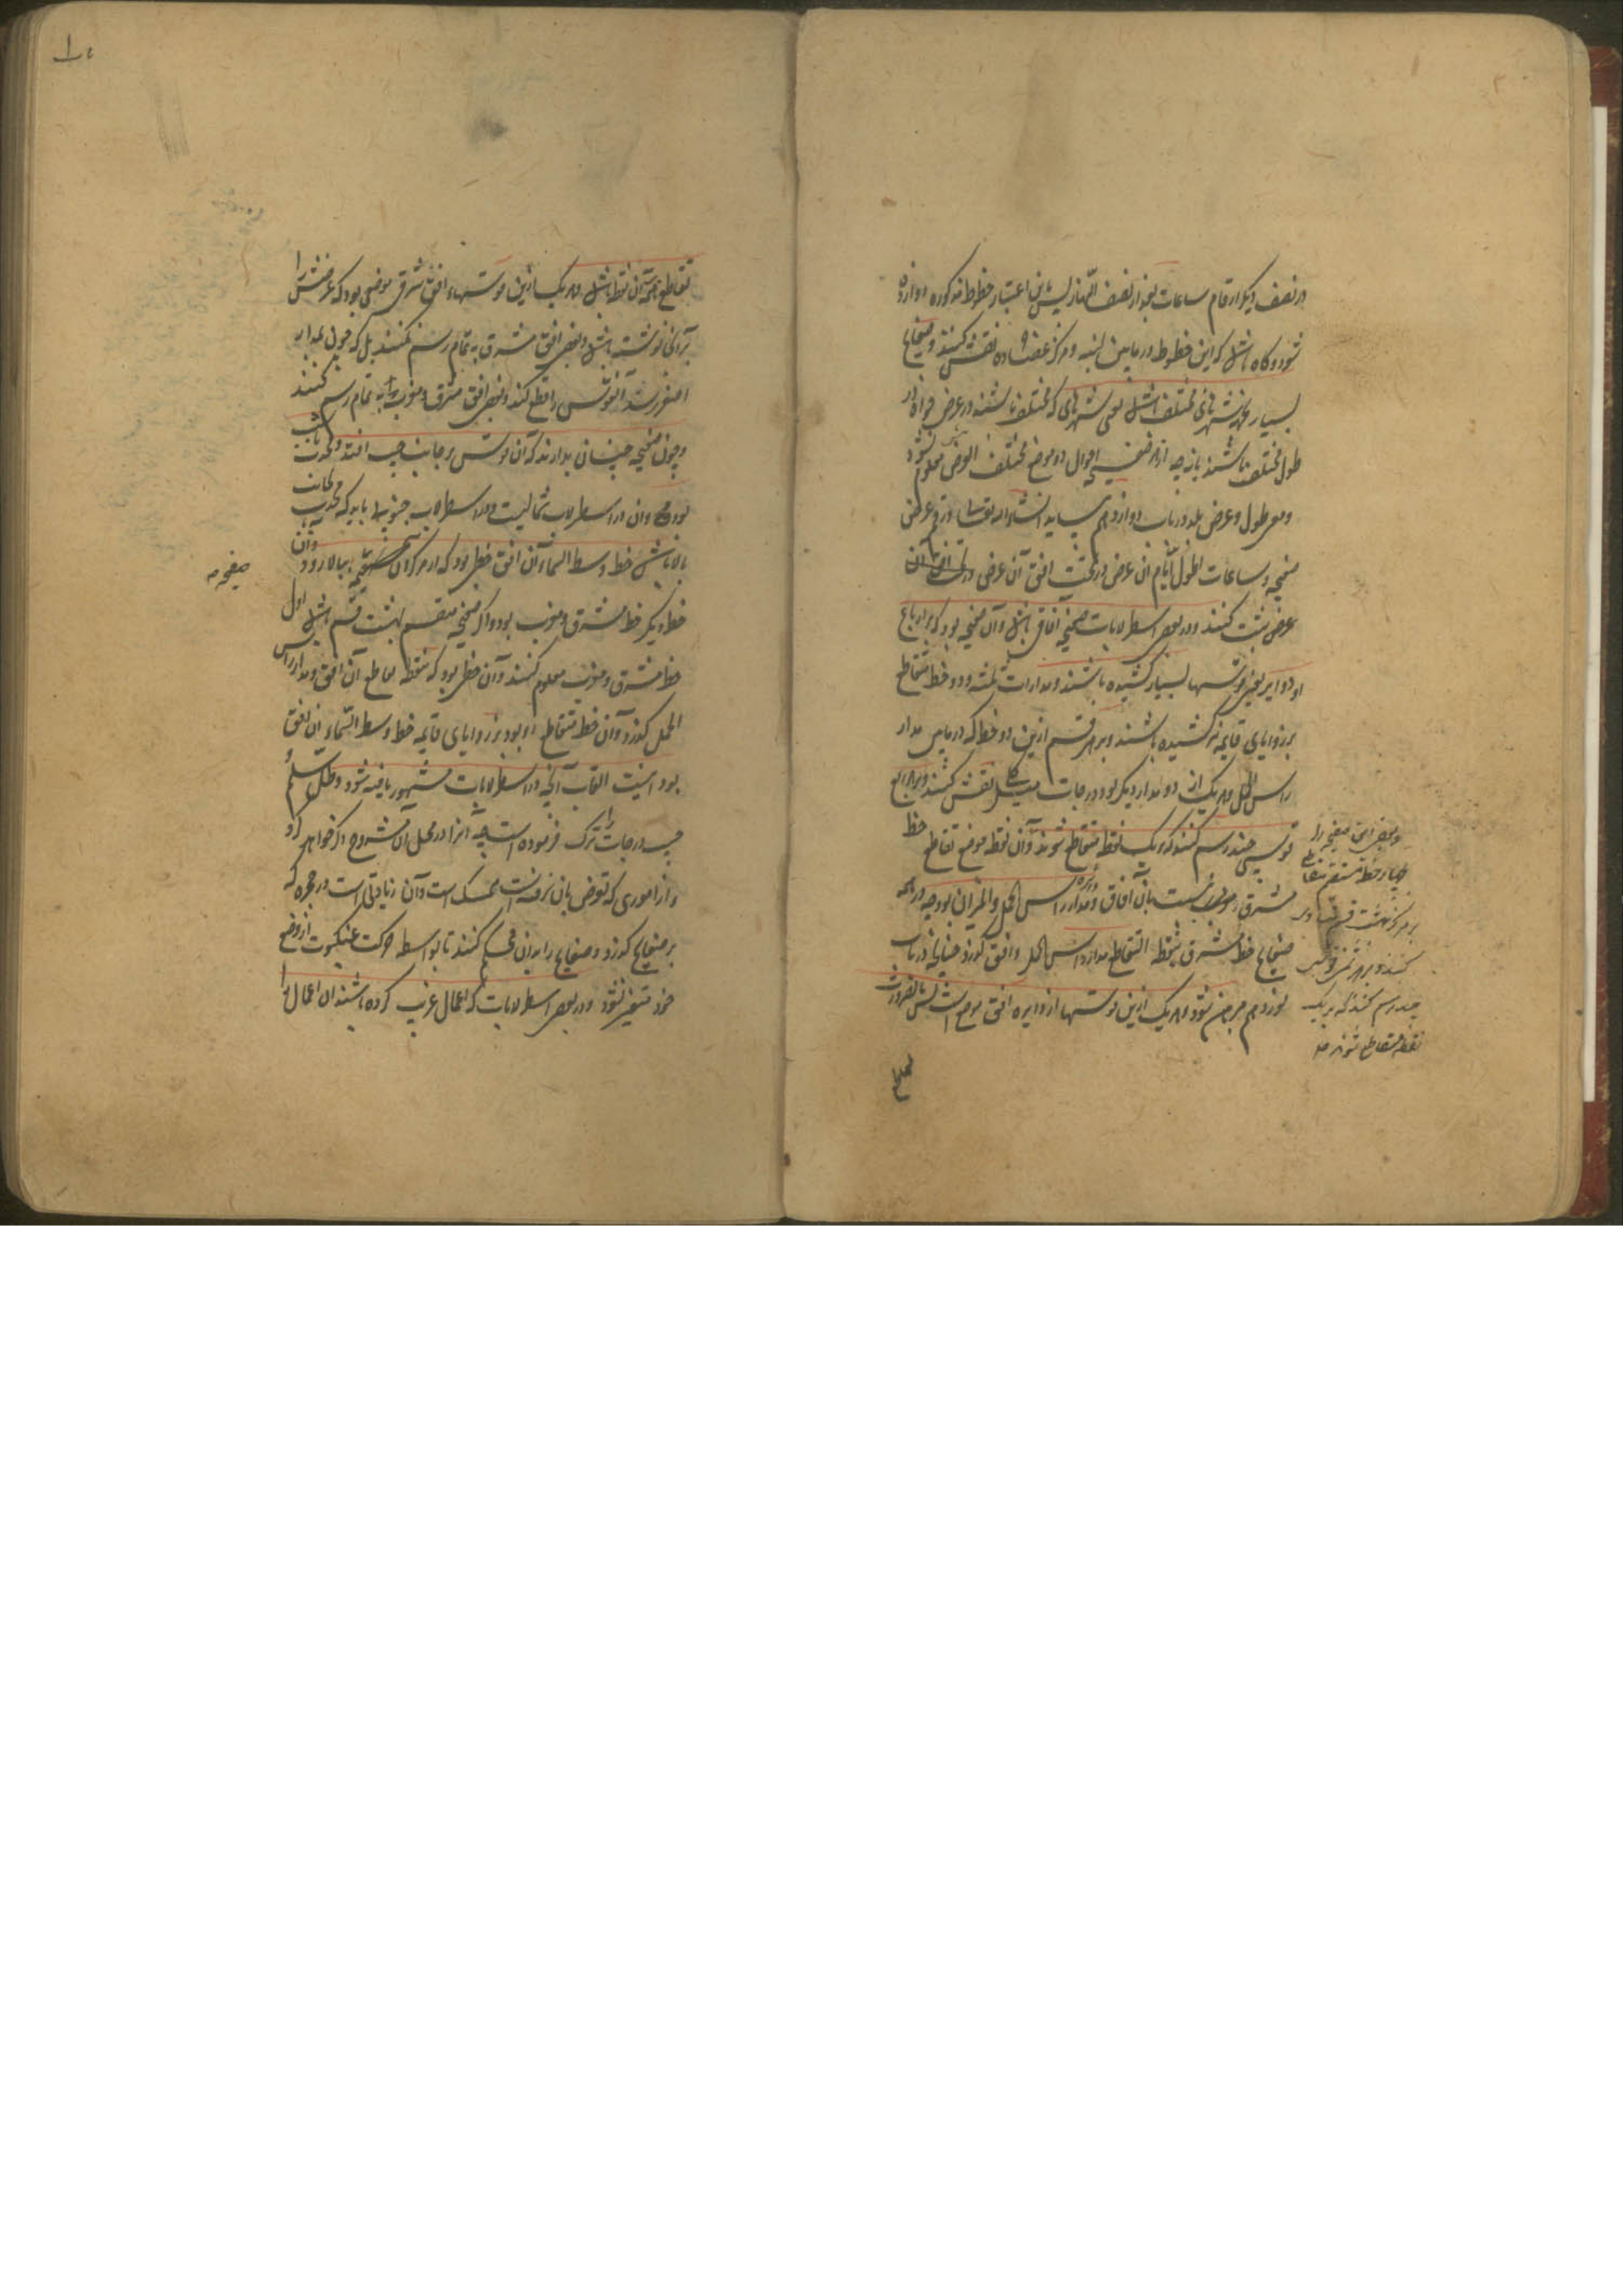 در نصف دیگر ارقام ساعات بعد از نصف النهار پس باین اعتبار خطوط مذکوره دوازده
شود و گاه باشد که این خطوط در مابین لبنه و مرکز عضاده نقش کنند و صفایح
بسیار بجهة شهرهای مختلف باشد یعنی شهرهای که مختلف باشند در عرض خواه در
طول مختلف باشند یا نه چه از هر صفیحه احوال دو موضع مختلف العرض معلوم نشود
و معرفة طول و عرض بلد در باب دوازدهم بیاید انشاء الله تعالی و رقم عرض
صفیحه و ساعات اطول ایام آن عرض در تحت افق آن عرض
عرض ثبت کنند و در بعضی اسطرلابات صفیحه آفاقی باشد و آن صفیحه بود که بر ارباع
او دوایر یعنی قوسها بسیار کشیده باشند و مدارات ثلثه و دو خط متقاطع
بر زوایای قایمه نیز کشیده باشند و بر هر قسم ازین دو خط که در مابین مدار
راس الحمل و هر یک از دو مدار دیگر بود درجات میل کلی نقش کنند و بر هر ربع
قوسی چند رسم کنند که بر یک نقطه متقاطع شوند و آن نقطه موضع تقاطع خط
مشرق و مغرب است بآن آفاق و مدار راس الحمل و المیزان بود چه در همه
صفایح خط مشرق بنقطه التقاطع مدار راس الحمل و افق گذرد چنانچه در باب
نوزدهم مبرهن شود و هر یک ازین قوسها از دایره افق موضعی است پس بالضرورت
تقاطع
و بعضی این صفیحه را
بچهار خط مستقیم متقاطع
بر مرکز بهشت قسم متساوی
کنند و بر هر ثمن قوسی
چند رسم کنند که بر یک
نقطه متقاطع شوند
۱۰
تقاطع همه آن نقطه باشد و هر یک ازین قوسها افق شرقی موضعی بود که عرضش را
بر آن نوشته باشد و بعضی افق مشرق به تمام رسم نکنند بل که چون بمدار
اصغر رسد آن قوس را قطع کند و بعضی افق مشرق و مغرب را به تمام رسم کنند
و چون صفیحه چنان بدارند که آن قوس بر جانب چپ افتد و محدب
بود و آن در اسطرلاب شمالیست و در اسطرلاب جنوبی باید که محدب بجانب
بالا باشد خط وسط السماء آن افق خطی بود که از مرکز آن صفیحه ببالا رود و آن
صفیحه
خط دیگر خط مشرق و مغرب بود و اگر صفیحه منقسم بهشت قسم باشد اول
خط مشرق و مغرب معلوم کنند و آن خطی بود که بنقطه تقاطع آن افق و مدار راس
الحمل گذرد و آن خط متقاطع او بود بر زوایای قایمه خط وسط السماء آن افق
بود اینست القاب آنچه در اسطرلابات مشهور یافته شود و ظل سلم و
جیب درجات را ترک فرموده است چه آنرا در محل آن مشروح ذکر خواهد کرد
و از اموری که تعرض بآن نرفته است ممسک است و آن زیادتی است در حجره که
بر صفایح گذرد و صفایح را بدان محکم کنند تا بواسطه حرکت عنکبوت از وضع
خود متغیر نشود و در بعضی اسطرلابات که اعمال غریب کرده باشند آن اعمال را